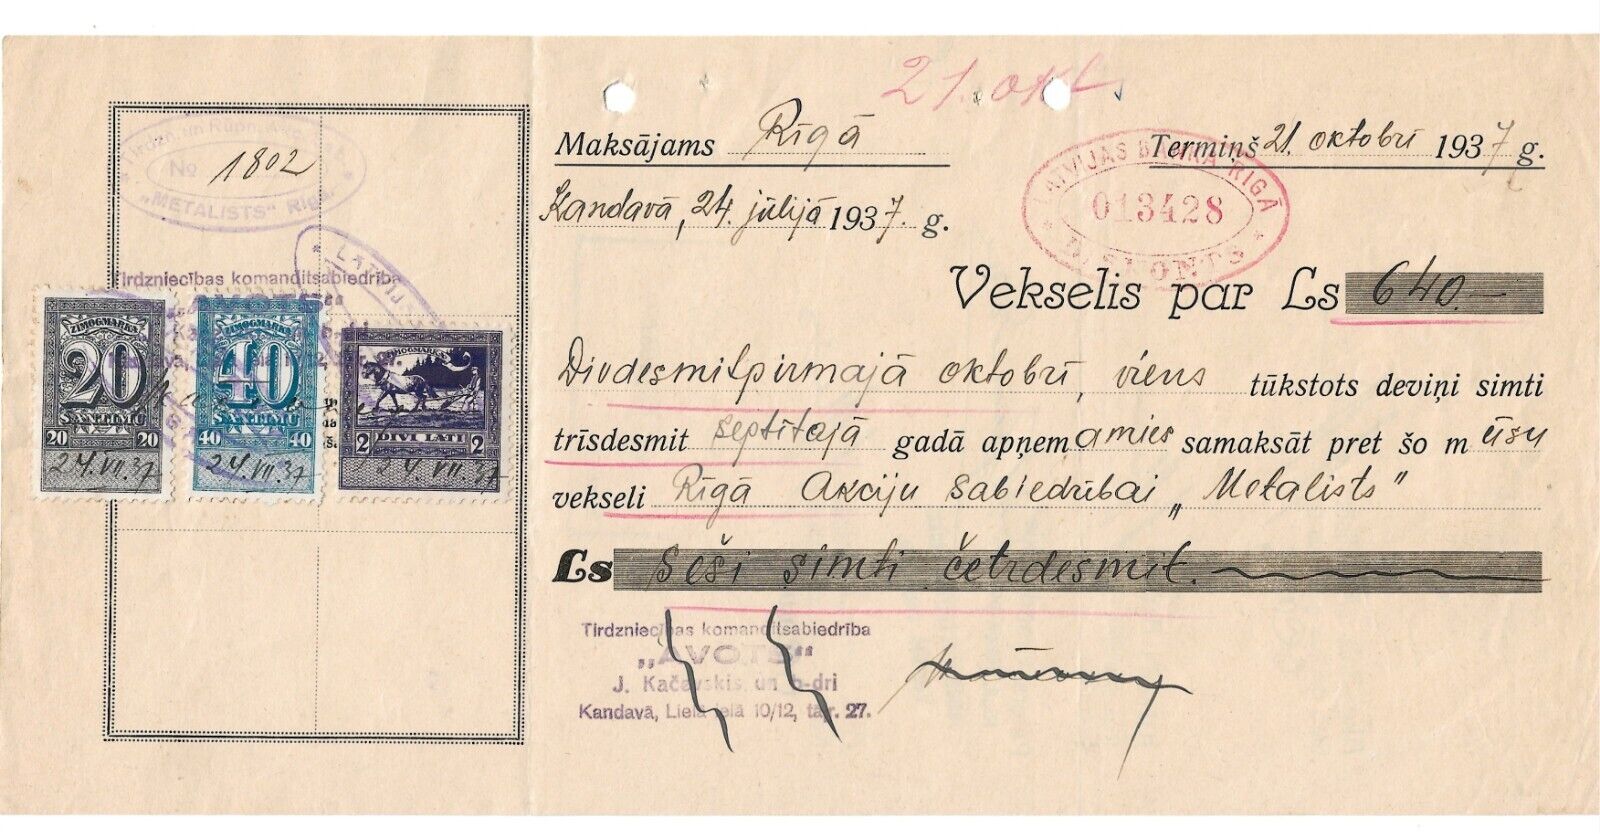 21. okt.
Maksājams Rīgā
Termiņš 21. oktobrī 1937 g.
Kandavā, 24. jūlijā 1937. g.
LATVIJAS BANKA RĪGĀ
013428
DISKONTS
Vekselis par Ls 640.—
Divdesmitpirmajā oktobrī, viens tūkstots deviņi simti
trīsdesmit septītajā gadā apņemamies samaksāt pret šo mūsu
vekseli Rīgā Akciju sabiedrībai „Metalists"
Ls seši simti četrdesmit.
Tirdzniecības komanditsabiedrība
„AVOTS"
J. Kačavskis un b-dri
Kandavā, Lielā ielā 10/12, tāļr. 27.
Tirdzn. un Rūpn. Akc. Sab.
No 1802
„METALISTS" Rīgā
Tirdzniecības komanditsabiedrība
ZIMOGMARKA
20
SANTIMU
20 20
24. VII. 37
ZIMOGMARKA
40
SANTIMU
40 40
24. VII. 37
ZIMOGMARKA
2 DIVI LATI 2
24. VII. 37